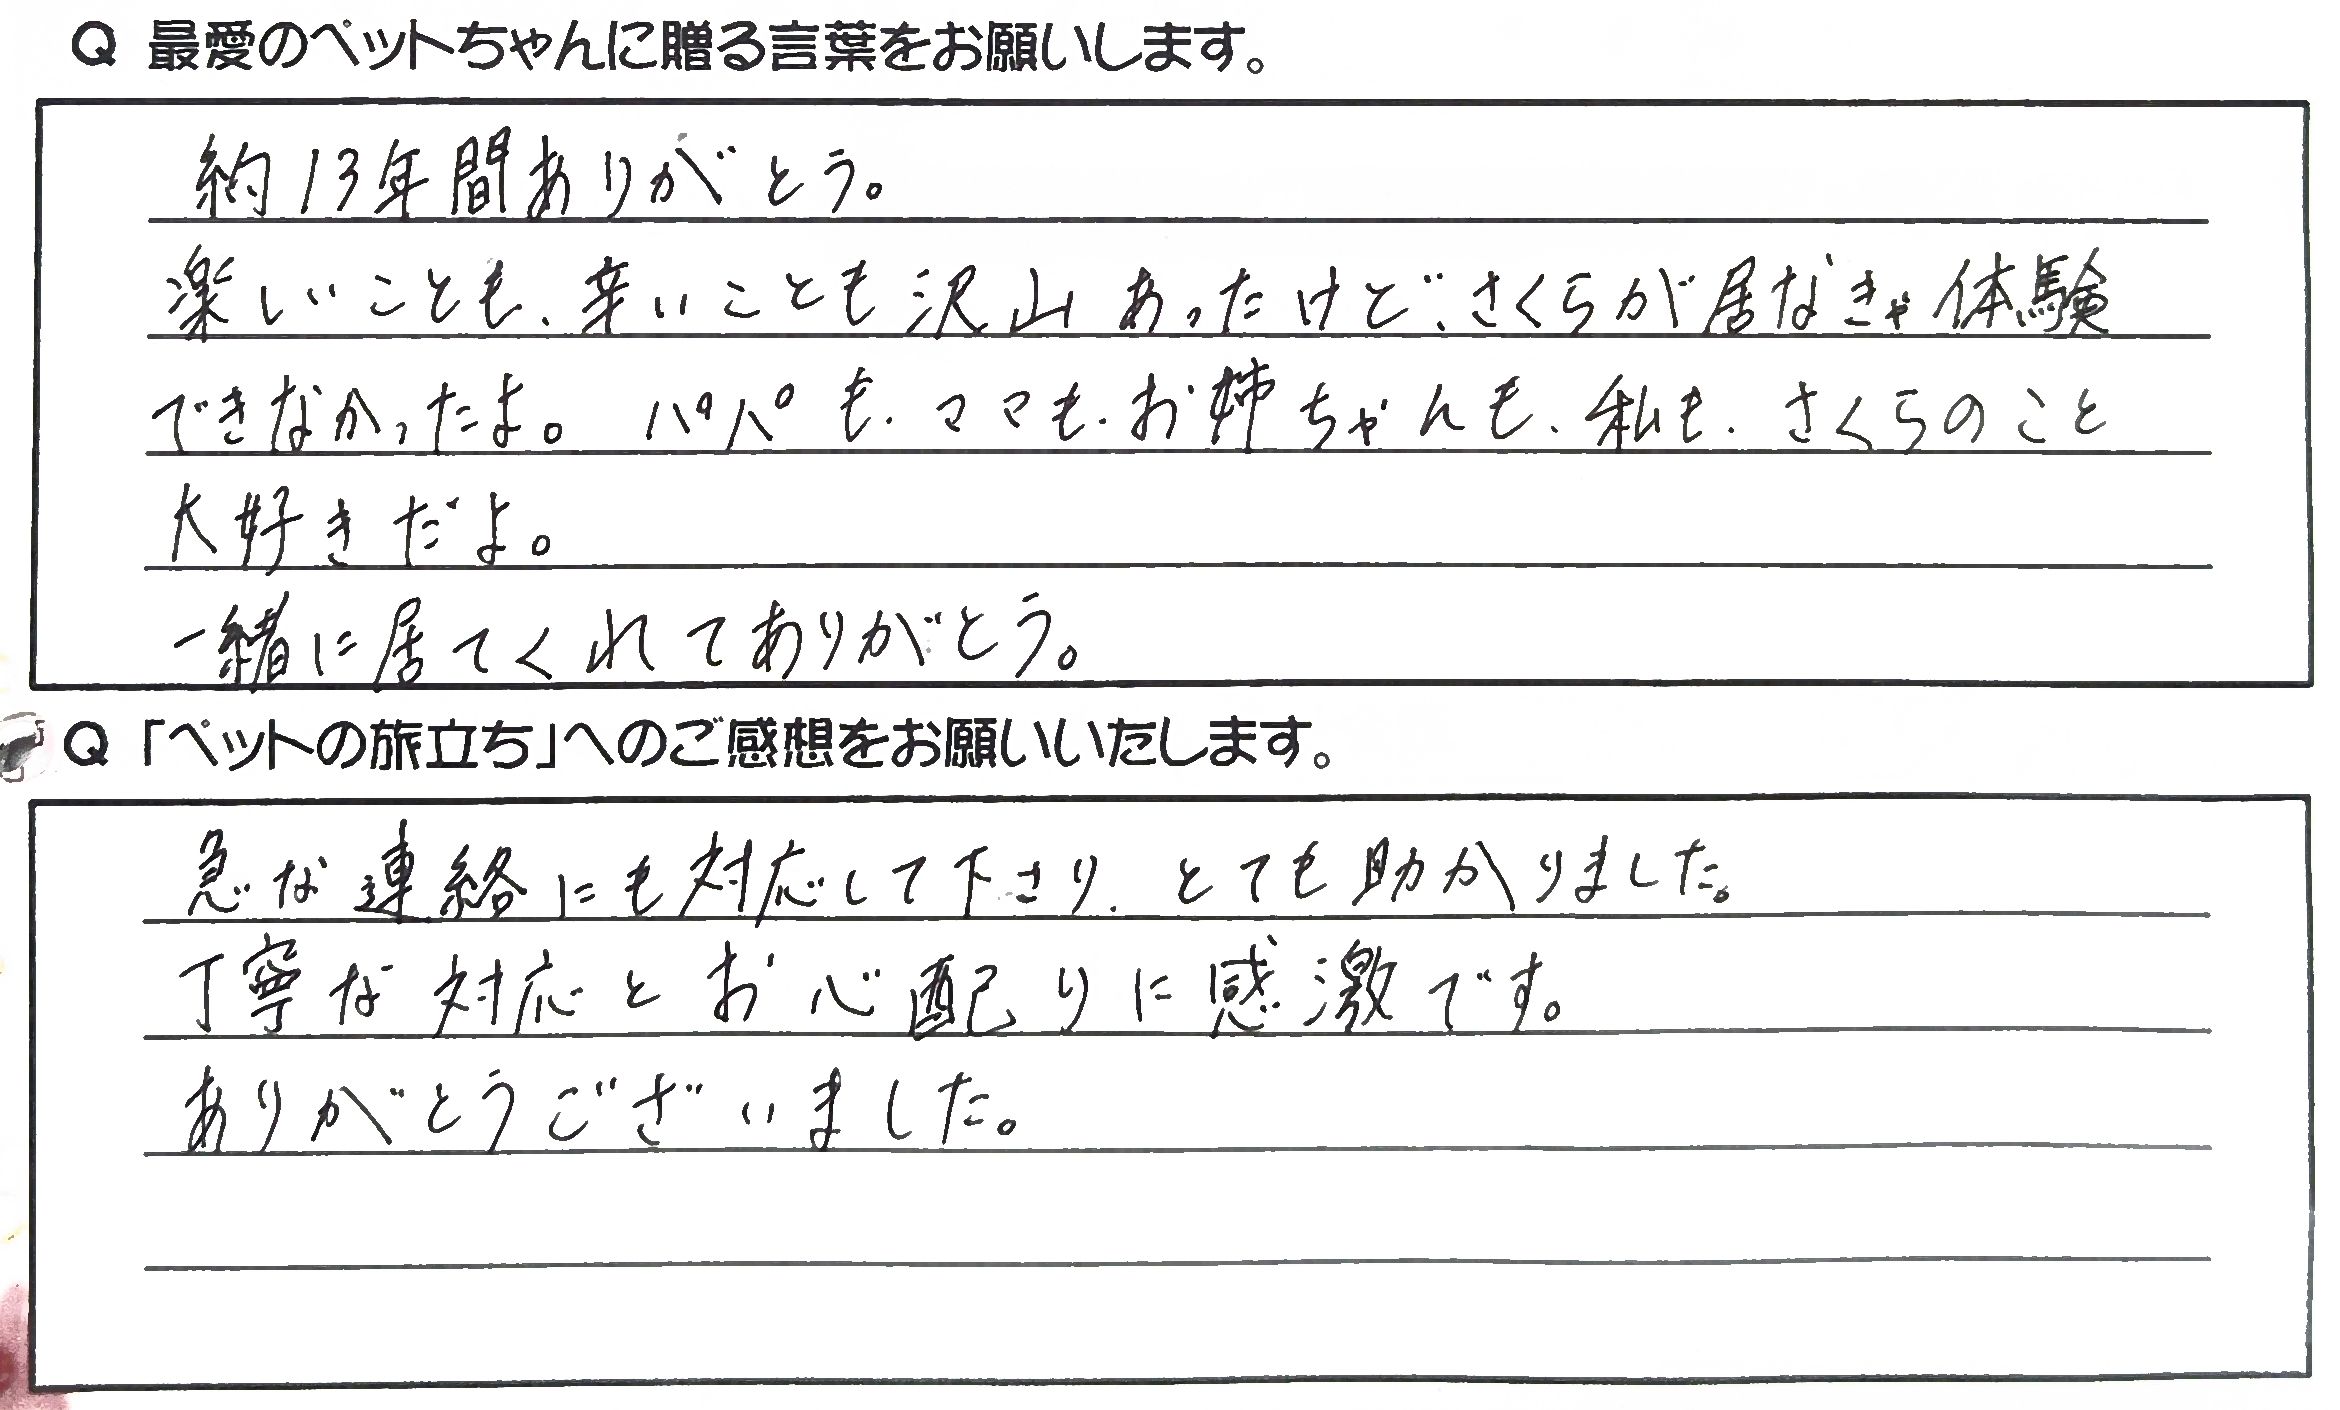 Q 最愛のペットちゃんに贈る言葉をお願いします。
約13年間ありがとう。
楽しいことも、辛いことも沢山あったけど、さくらが居なきゃ体験
できなかったよ。パパも、ママも、お姉ちゃんも、私も、さくらのこと
大好きだよ。
一緒に居てくれてありがとう。
Q 「ペットの旅立ち」へのご感想をお願いいたします。
急な連絡にも対応して下さり、とても助かりました。
丁寧な対応とお心配りに感激です。
ありがとうございました。